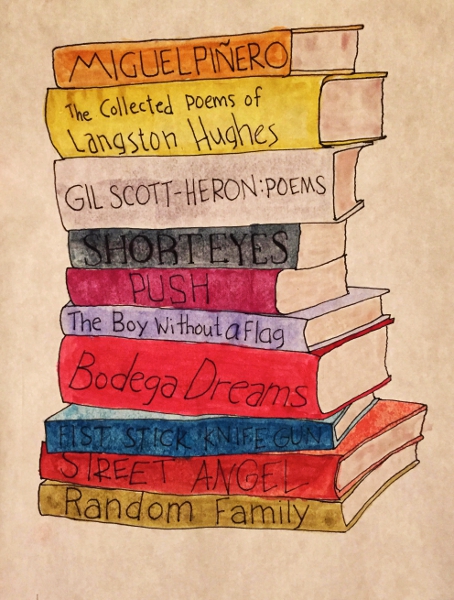 MIGUEL PIÑERO
The Collected poems of
Langston Hughes
GIL SCOTT-HERON:POEMS
SHORT EYES
PUSH
The Boy Without a flag
Bodega Dreams
FIST STICK KNIFE GUN
STREET ANGEL
Random Family